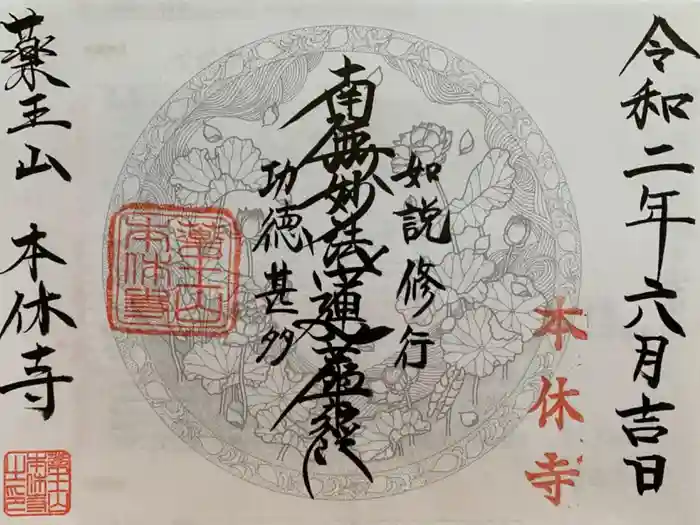 令和二年六月吉日
本休寺
如説修行
南無妙法蓮華経
功徳甚多
薬王山
本休寺
薬王山 本休寺
薬王山
本休寺